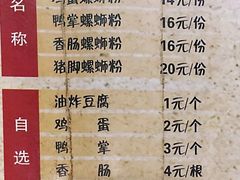 名称
蛋螺蛳粉 14元/份
鸭掌螺蛳粉 16元/份
香肠螺蛳粉 16元/份
猪脚螺蛳粉 20元/份
自选
油炸豆腐 1元/个
鸡蛋 2元/个
鸭掌 3元/个
香肠 4元/根